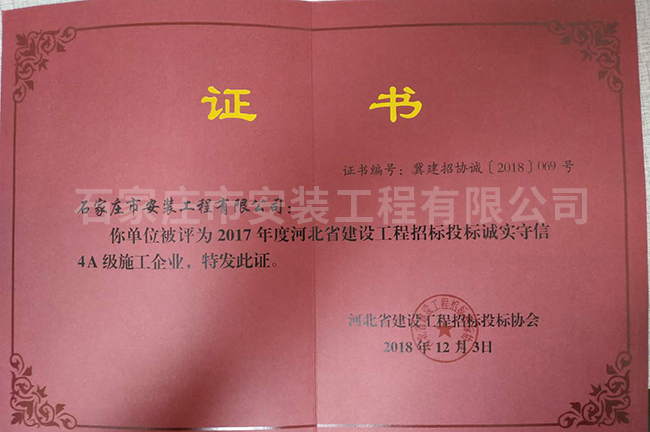 证 书
证书编号：冀建招协诚〔2018〕069 号
石家庄市安装工程有限公司：
石家庄市安装工程有限公司
你单位被评为 2017 年度河北省建设工程招标投标诚实守信
4A 级施工企业，特发此证。
河北省建设工程招标投标协会
2018 年 12 月 3日